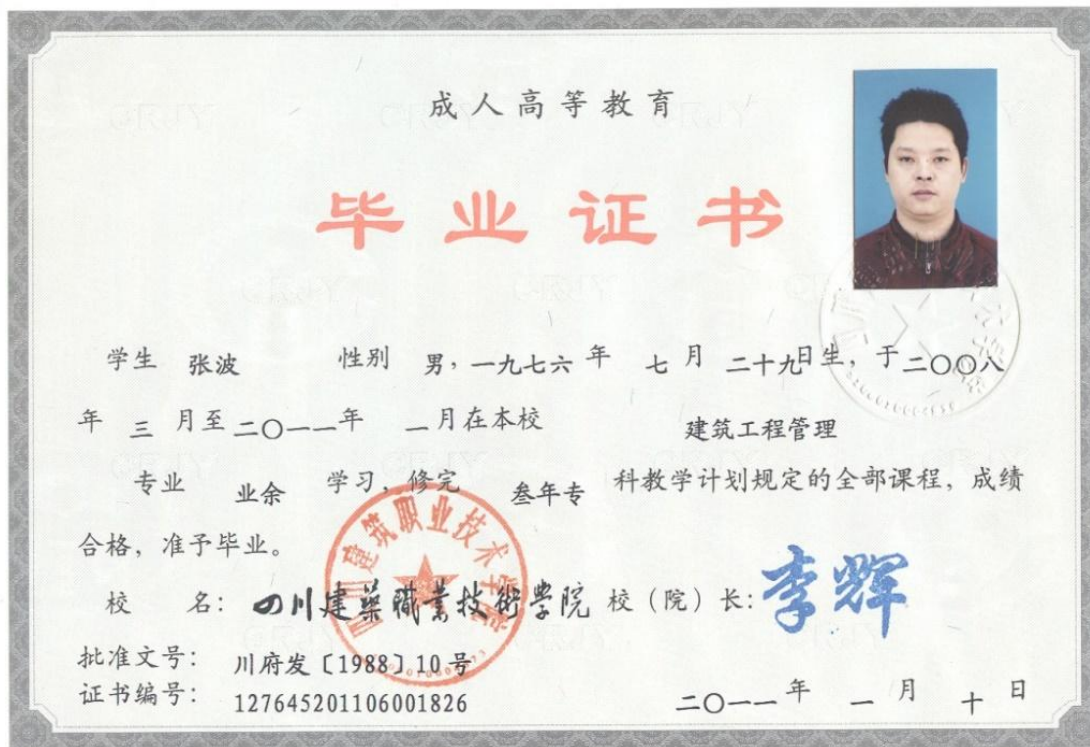 成人高等教育
毕业证书
学生 张波 性别 男，一九七六 年 七 月 二十九日生，于二〇〇八
年 三 月至二〇一一年 一月在本校 建筑工程管理
专业 业余 学习，修完 叁年专 科教学计划规定的全部课程，成绩
合格，准予毕业。
校 名：四川建築職業技術學院 校（院）长：李辉
批准文号：川府发〔1988〕10号
证书编号：127645201106001826
二〇一一 年 一 月 十 日
四川建筑职业技术学院